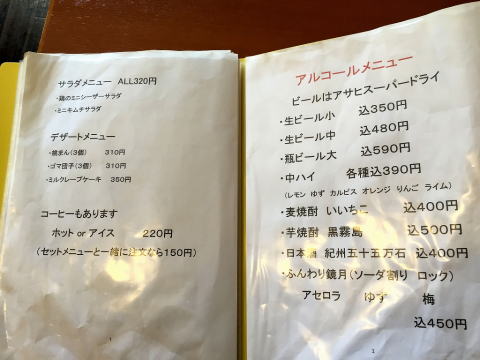 サラダメニュー ALL320円
・鶏のミニシーザーサラダ
・ミニキムチサラダ
デザートメニュー
・桃まん(3個) 310円
・ゴマ団子(3個) 310円
・ミルクレープケーキ 350円
コーヒーもあります
ホット or アイス 220円
(セットメニューと一緒に注文なら150円)
1
アルコールメニュー
ビールはアサヒスーパードライ
・生ビール小 込350円
・生ビール中 込480円
・瓶ビール大 込590円
・中ハイ 各種込390円
(レモン ゆず カルピス オレンジ りんご ライム)
・麦焼酎 いいちこ 込400円
・芋焼酎 黒霧島 込500円
・日本酒 紀州五十五万石 込400円
・ふんわり鏡月(ソーダ割り ロック)
アセロラ ゆず 梅
込450円
1